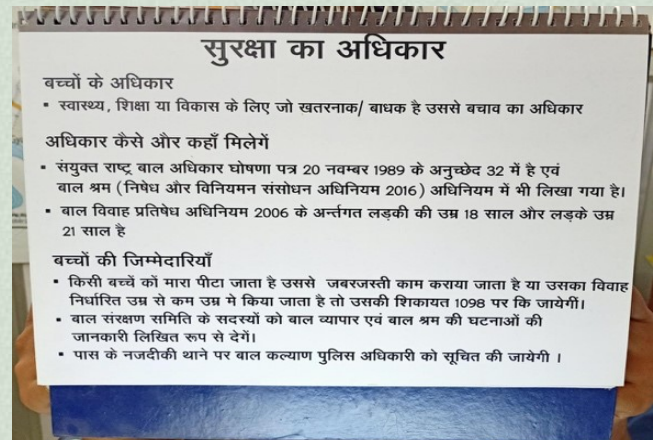 सुरक्षा का अधिकार
बच्चों के अधिकार
▪ स्वास्थ्य, शिक्षा या विकास के लिए जो खतरनाक/ बाधक है उससे बचाव का अधिकार
अधिकार कैसे और कहाँ मिलेगें
▪ संयुक्त राष्ट्र बाल अधिकार घोषणा पत्र 20 नवम्बर 1989 के अनुच्छेद 32 में है एवं
बाल श्रम (निषेध और विनियमन संसोधन अधिनियम 2016) अधिनियम में भी लिखा गया है।
▪ बाल विवाह प्रतिषेध अधिनियम 2006 के अर्न्तगत लड़की की उम्र 18 साल और लड़के उम्र
21 साल है
बच्चों की जिम्मेदारियाँ
▪ किसी बच्चें कों मारा पीटा जाता है उससे जबरजस्ती काम कराया जाता है या उसका विवाह
निर्धारित उम्र से कम उम्र मे किया जाता है तो उसकी शिकायत 1098 पर कि जायेगीं।
▪ बाल संरक्षण समिति के सदस्यों को बाल व्यापार एवं बाल श्रम की घटनाओं की
जानकारी लिखित रूप से देगें।
▪ पास के नजदीकी थाने पर बाल कल्याण पुलिस अधिकारी को सूचित की जायेगी ।